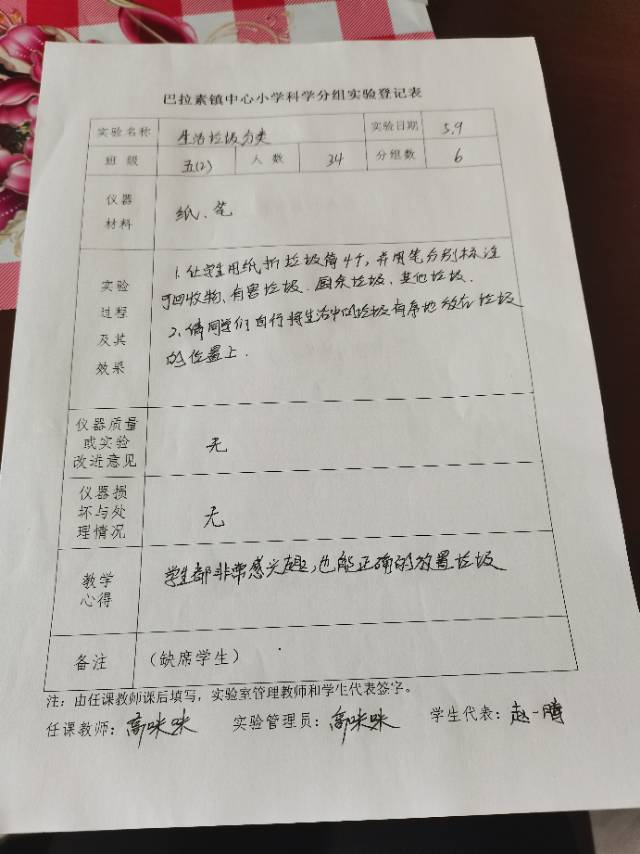 巴拉素镇中心小学科学分组实验登记表
实验名称 生活垃圾分类 实验日期 5.9
班级 五(2) 人数 34 分组数 6
仪器材料 纸、笔
实验过程及其效果
1. 让学生用纸折垃圾筒4个,并用笔分别标注
可回收物、有害垃圾、厨余垃圾、其他垃圾.
2. 请同学们自行将生活中的垃圾有序地放在垃圾
的位置上.
仪器质量或实验改进意见 无
仪器损坏与处理情况 无
教学心得 学生都非常感兴趣,也能正确的放置垃圾
备注 (缺席学生)
注:由任课教师课后填写,实验室管理教师和学生代表签字。
任课教师:高咪咪 实验管理员:高咪咪 学生代表:赵一腾